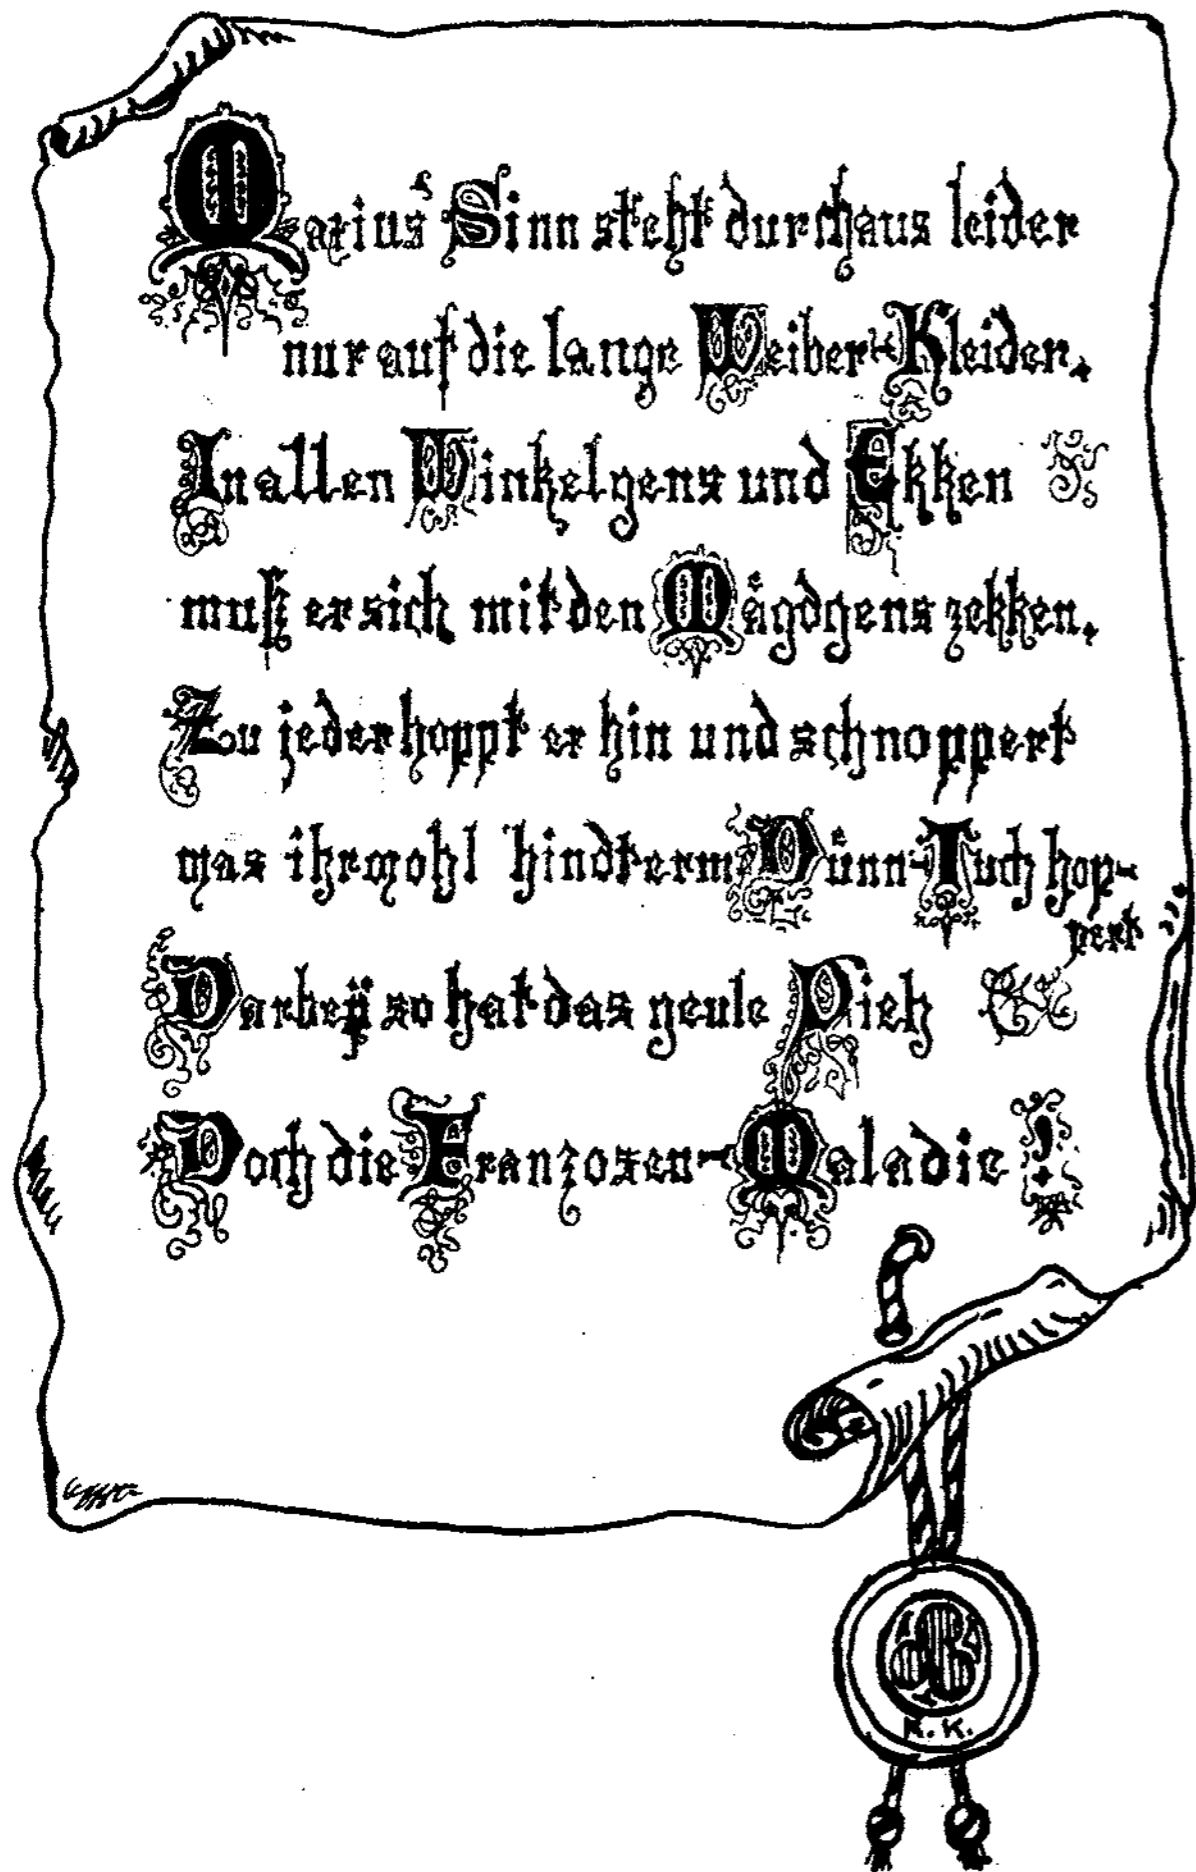 Marius' Sinn steht durchaus leider
nur auf die lange Weiber-Kleider.
In allen Winkelgens und Ekken
muß er sich mit den Mägdgens zekken.
Zu jeder hoppt er hin und schnoppert
was ihr wohl hindterm Dünn-Tuch hop-
pert
Darbeÿ so hat das geule Vieh
Doch die Franzosen-Maladie!
K. K.